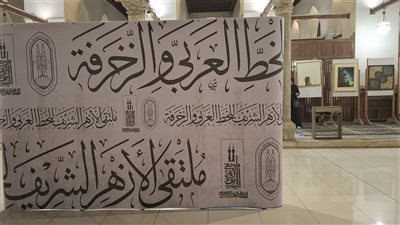 لخط العربي والزخرفة
ملتقى الأزهر الشريف للخط العربي والزخرفة
ملتقى الأزهر الشريف